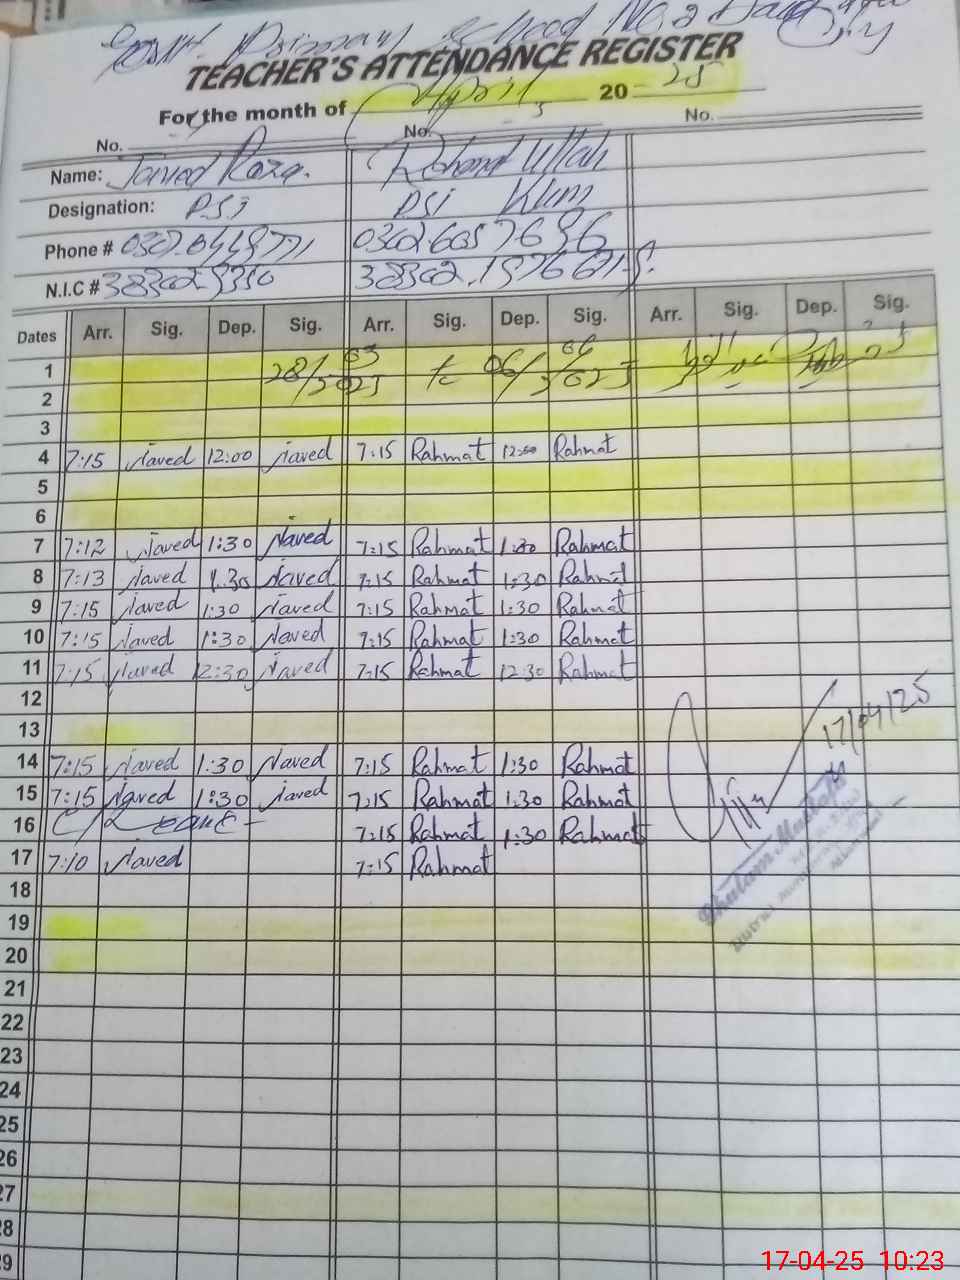 Govt. Primary School No. 2 Daud
City
TEACHER'S ATTENDANCE REGISTER
For the month of April 2025
No. No. No.
Name: Javed Raza. Rahmat Ullah
Designation: PST PST Khan
Phone # 03026057696
N.I.C #
Dates Arr. Sig. Dep. Sig. Arr. Sig. Dep. Sig. Arr. Sig. Dep. Sig.
1 28/03/2025 to 06/04/2025
2
3
4 7:15 Javed 12:00 Javed 7:15 Rahmat 12:00 Rahmat
5
6
7 7:12 Javed 1:30 Javed 7:15 Rahmat 1:30 Rahmat
8 7:13 Javed 1:30 Javed 7:15 Rahmat 1:30 Rahmat
9 7:15 Javed 1:30 Javed 7:15 Rahmat 1:30 Rahmat
10 7:15 Javed 1:30 Javed 7:15 Rahmat 1:30 Rahmat
11 7:15 Javed 12:30 Javed 7:15 Rahmat 12:30 Rahmat
12
13
17/04/25
14 7:15 Javed 1:30 Javed 7:15 Rahmat 1:30 Rahmat
15 7:15 Javed 1:30 Javed 7:15 Rahmat 1:30 Rahmat
16 C/Leave 7:15 Rahmat 1:30 Rahmat
17 7:10 Javed 7:15 Rahmat
Ghulam Mustafa
18
19
20
21
22
23
24
25
26
27
28
29
17-04-25 10:23